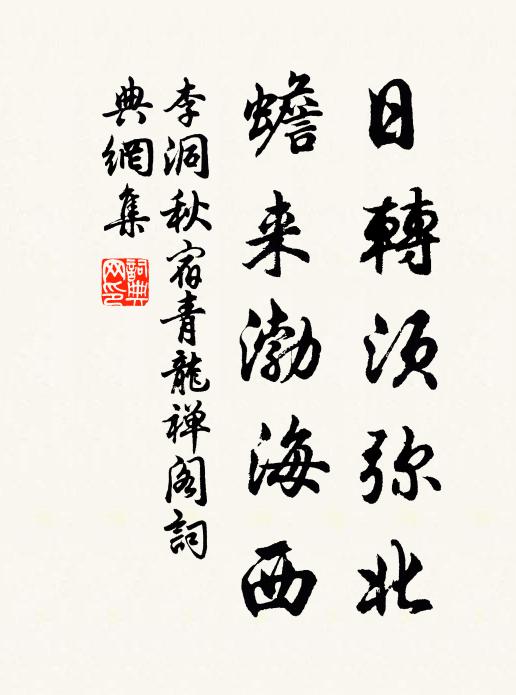 日轉須弥北
蟾来渤海西
李洞秋宿青龍禅阁詞
典網集
詞典
网印